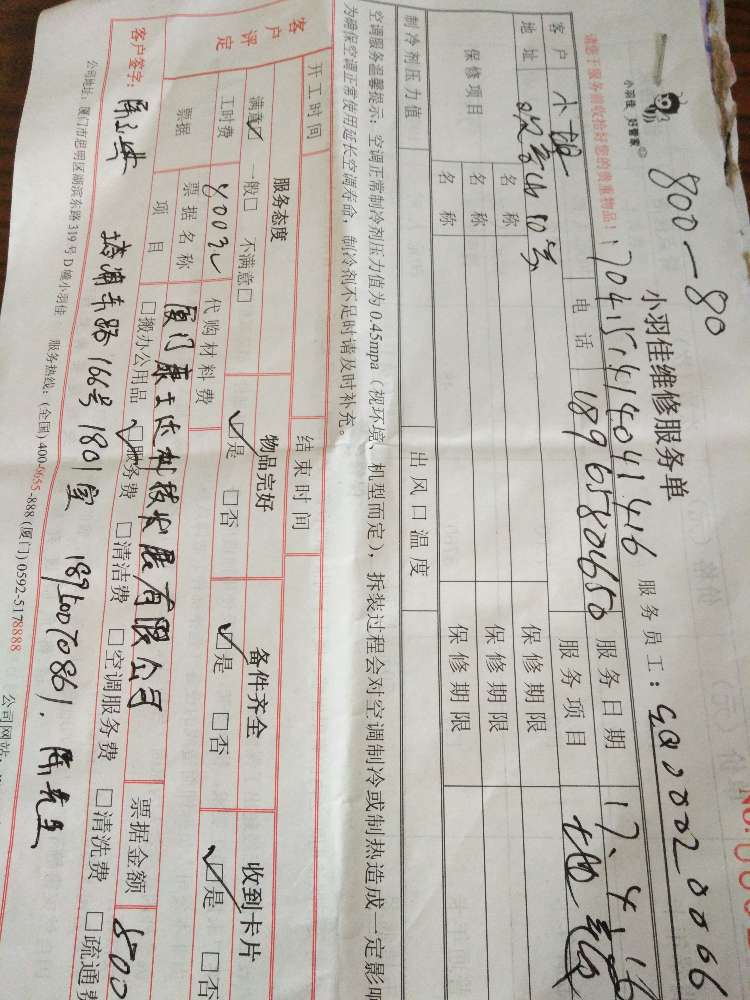 小羽佳 好管家
800-80
小羽佳维修服务单
请您于服务前收拾好您的贵重物品!
1704151414041416
服务员工:
客户 小魏 电话 18965804650 服务日期 17.4.16
地址 10号 服务项目
保修项目 名称 保修期限
名称 保修期限
名称 保修期限
制冷剂压力值 出风口温度
空调服务温馨提示:空调正常制冷剂压力值为0.45mpa(视环境、机型而定),拆装过程会对空调制冷或制热造成一定影响
为确保空调正常使用延长空调寿命,制冷剂不足时请及时补充。
开工时间 结束时间
客户评定 服务态度 物品完好 备件齐全 收到卡片
满意☑ 一般□ 不满意□ ☑是 □否 ☑是 □否 ☑是 □否
工时费 代购材料费
票据 票据名称 厦门康士达科技发展有限公司 票据金额 800
项目 □搬办公用品 ☑服务费 □清洁费 □空调服务费 □清洗费 □疏通费
客户签字:
东路166号1801室 18960070861. 陈先生
公司地址:厦门市思明区湖滨东路319号D幢小羽佳 服务热线:(全国)400-0655-888(厦门)0592-5178888 公司网站: